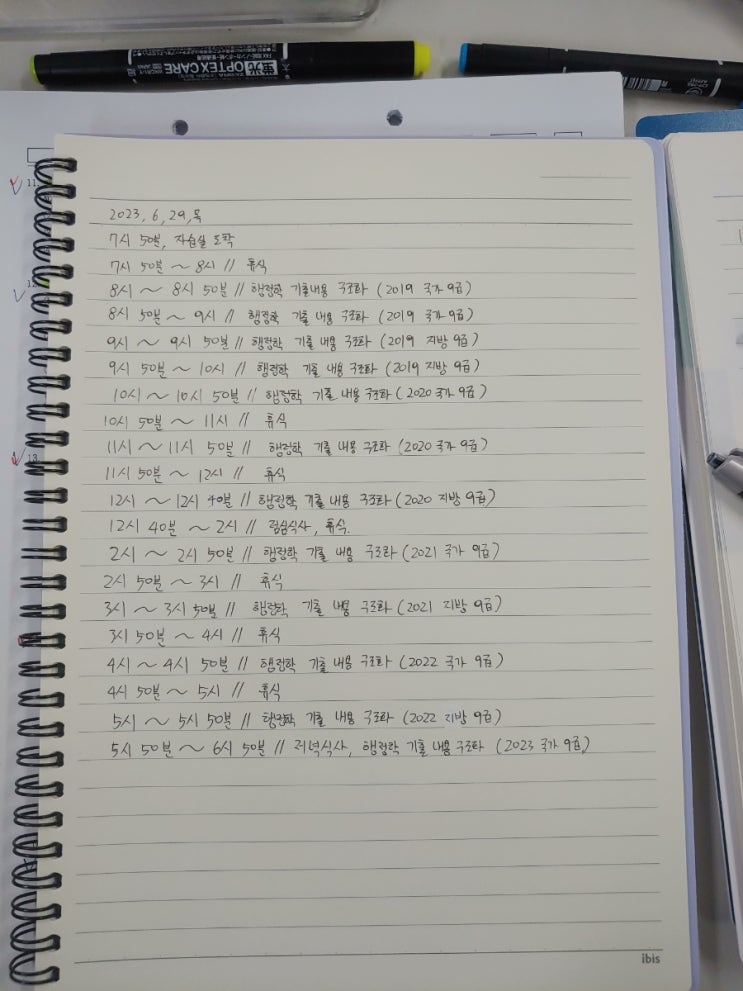 OPTEX CARE
11.
12.
13.
2023, 6, 29, 목
7시 50분, 자습실 도착
7시 50분 ~ 8시 // 휴식
8시 ~ 8시 50분 // 행정학 기출내용 구조화 (2019 국가 9급)
8시 50분 ~ 9시 // 행정학 기출 내용 구조화 (2019 국가 9급)
9시 ~ 9시 50분 // 행정학 기출 내용 구조화 (2019 지방 9급)
9시 50분 ~ 10시 // 행정학 기출 내용 구조화 (2019 지방 9급)
10시 ~ 10시 50분 // 행정학 기출 내용 구조화 (2020 국가 9급)
10시 50분 ~ 11시 // 휴식
11시 ~ 11시 50분 // 행정학 기출 내용 구조화 (2020 국가 9급)
11시 50분 ~ 12시 // 휴식
12시 ~ 12시 40분 // 행정학 기출 내용 구조화 (2020 지방 9급)
12시 40분 ~ 2시 // 점심식사, 휴식.
2시 ~ 2시 50분 // 행정학 기출 내용 구조화 (2021 국가 9급)
2시 50분 ~ 3시 // 휴식
3시 ~ 3시 50분 // 행정학 기출 내용 구조화 (2021 지방 9급)
3시 50분 ~ 4시 // 휴식
4시 ~ 4시 50분 // 행정학 기출 내용 구조화 (2022 국가 9급)
4시 50분 ~ 5시 // 휴식
5시 ~ 5시 50분 // 행정학 기출 내용 구조화 (2022 지방 9급)
5시 50분 ~ 6시 50분 // 저녁식사, 행정학 기출 내용 구조화 (2023 국가 9급)
ibis